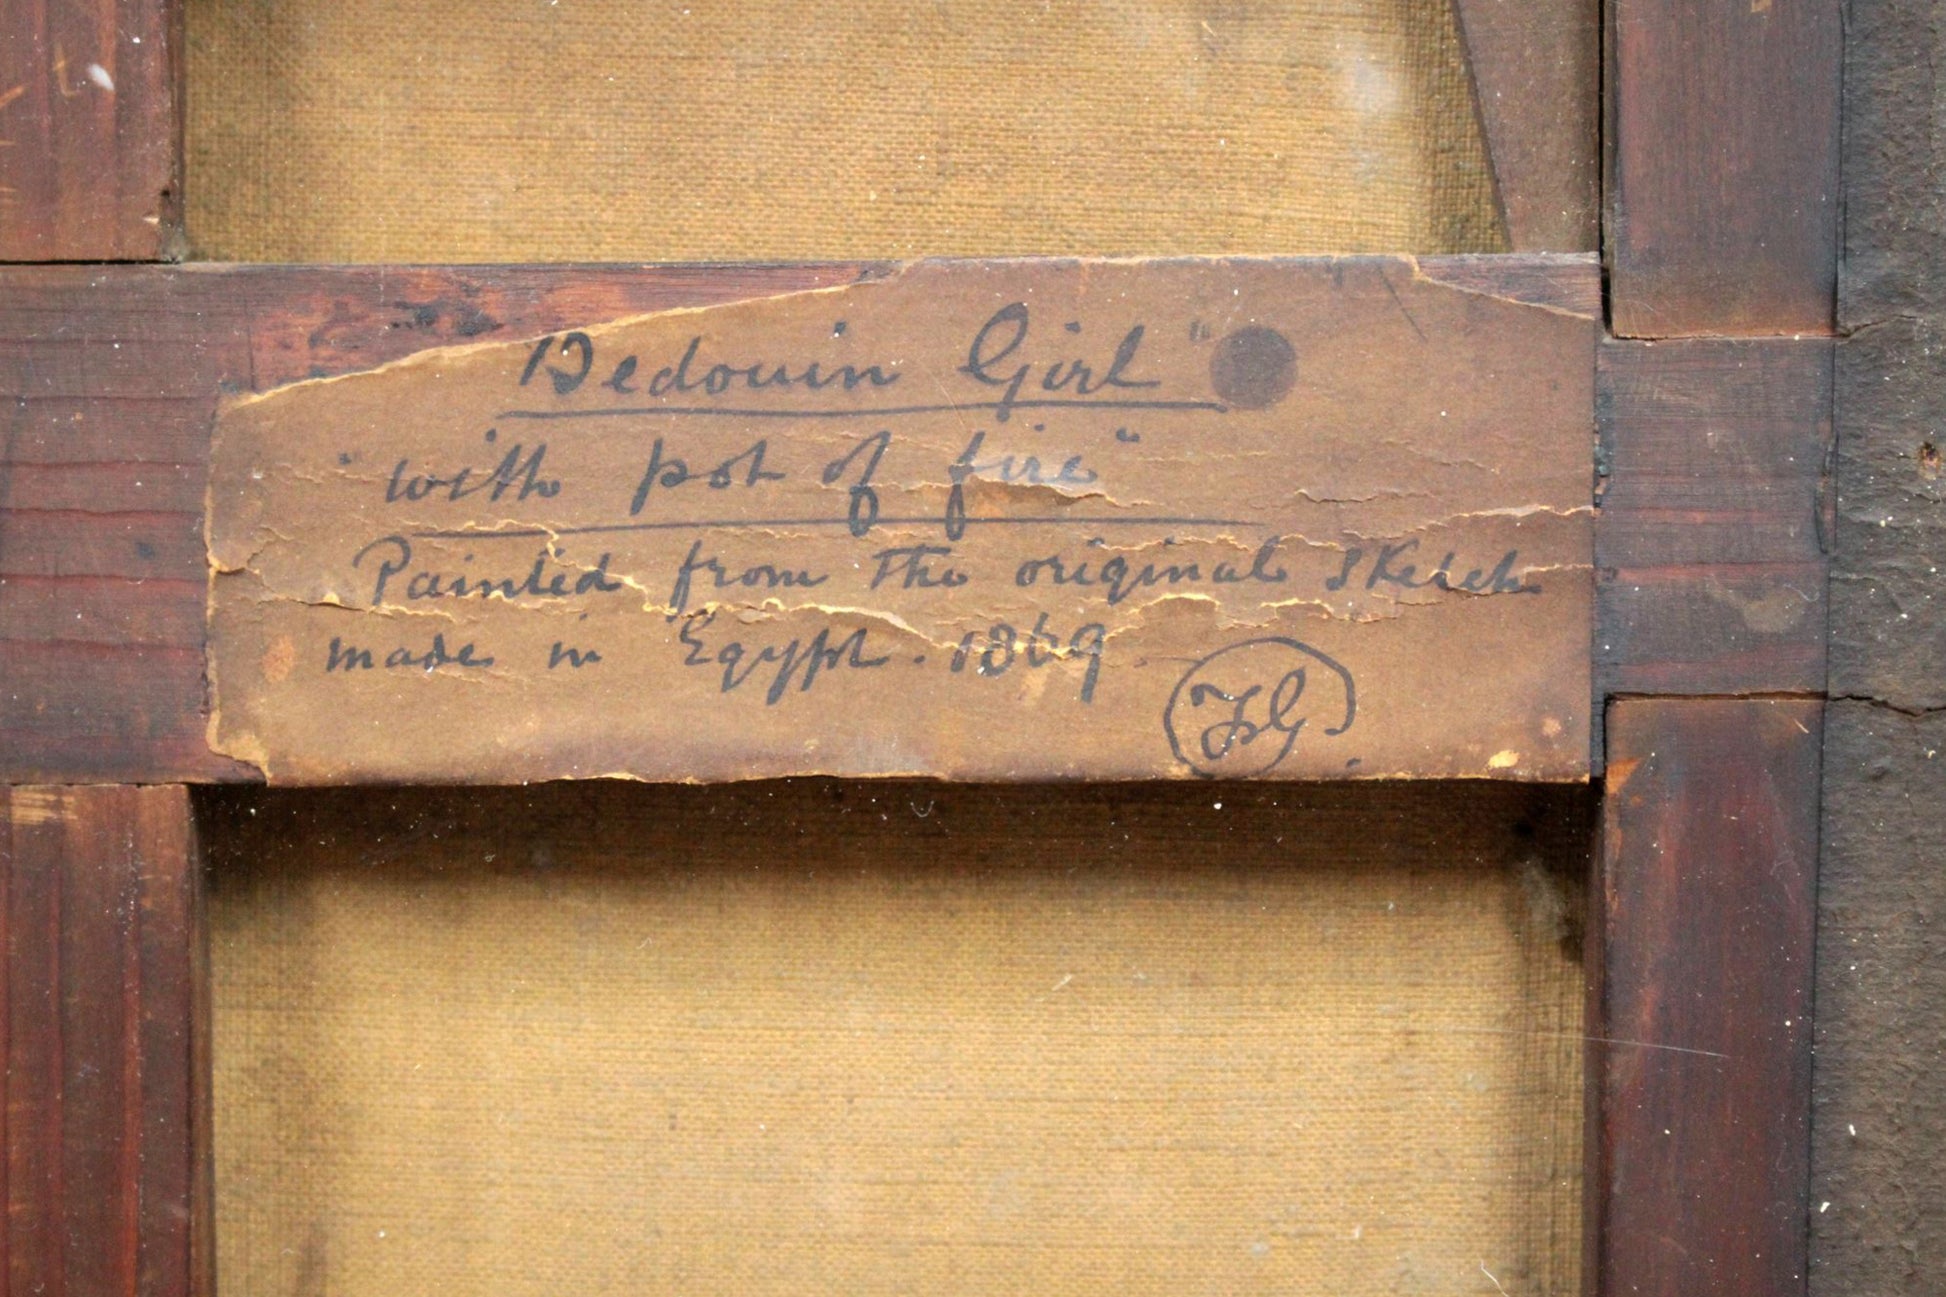 Bedouin Girl"
"with pot of fire"
Painted from the original sketch
made in Egypt. 1869.
FG